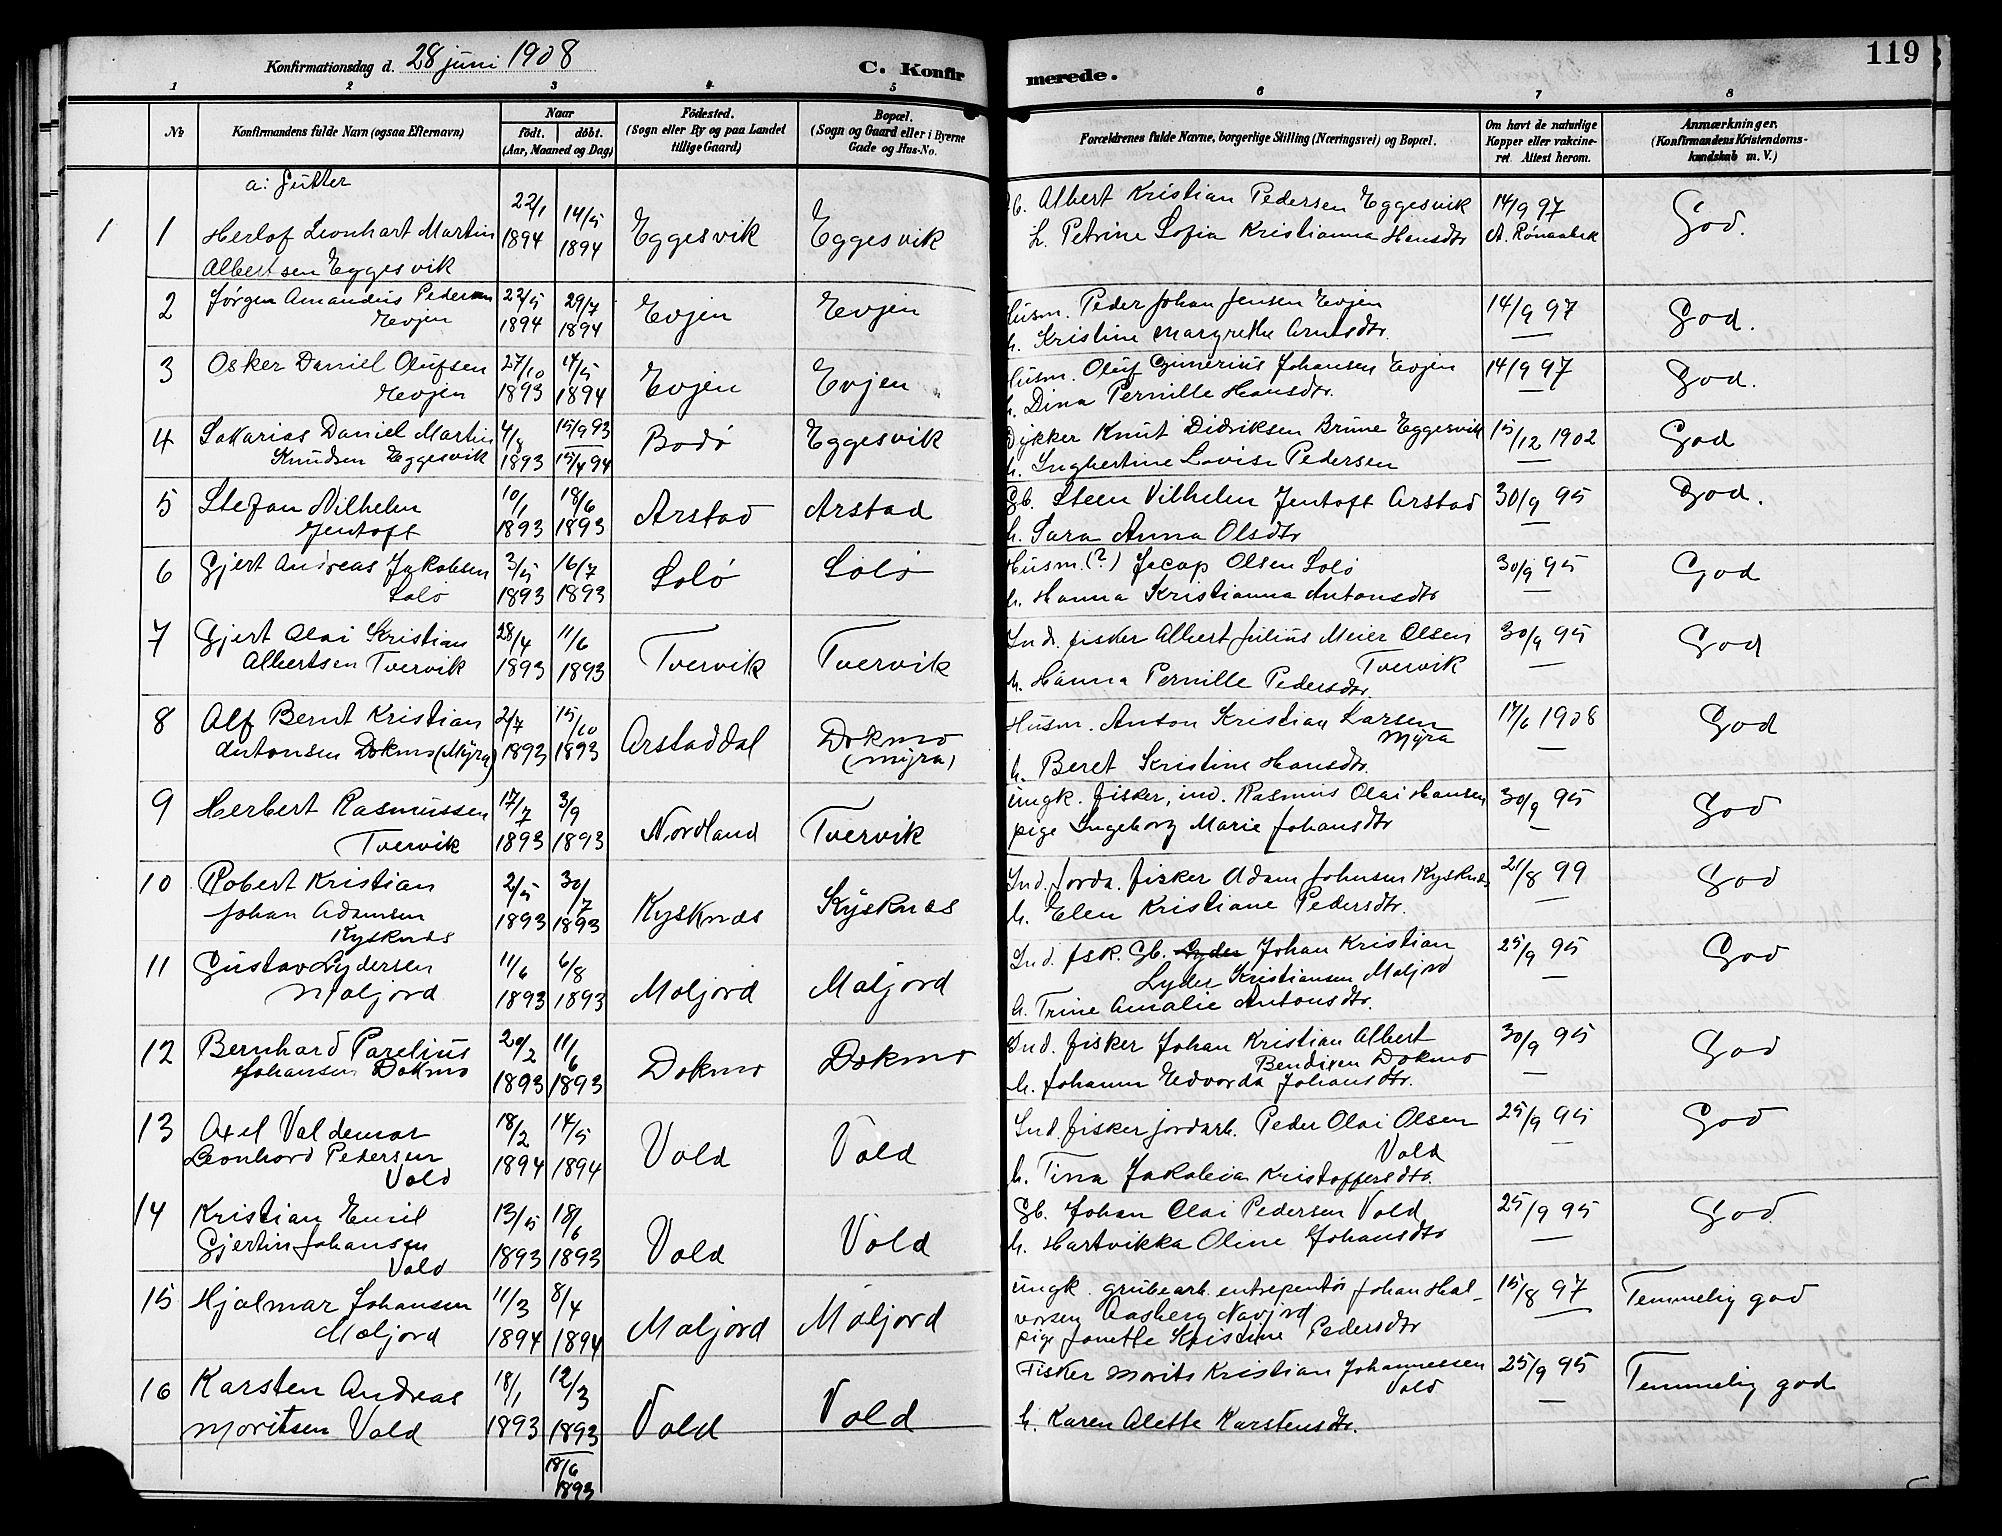 Konfirmationsdag d. 28 juni 1908
C. Konfirmerede.
119
1 2 3 4 5 6 7 8
No
Konfirmandens fulde Navn (ogsaa Efternavn)
Naar
födt. döbt.
(Aar, Maaned og Dag)
Födested.
(Sogn eller By og paa Landet
tillige Gaard)
Bopæl.
(Sogn og Gaard eller i Byerne
Gade og Hus-No.
Forældrenes fulde Navne, borgerlige Stilling (Næringsvei) og Bopæl.
Om havt de naturlige
Kopper eller vakcine-
ret. Attest herom.
Anmærkninger.
(Konfirmandens Kristendoms-
kundskab m. V.)
a: Gutter
1 1 Herlof Leonhart Martin
Albertsen Eggesvik
22/1 1894 14/5 1894 Eggesvik Eggesvik
Gb. Albert Kristian Pedersen Eggesvik
h. Petrine Sofia Kristianna Hansdtr
14/9 97
A. Rönaabek
God.
2 Jørgen Amandus Pedersen
Evjen
22/5 1894 29/7 1894 Evjen Evjen
Husm. Peder Johan Jensen Evjen
h. Kristine Margrethe Arntsdtr.
14/9 97 — God.
3 Osker Daniel Olufsen
Evjen
27/10 1893 14/5 1894 Evjen Evjen
Husm. Oluf Johansen Evjen
h. Dina Pernille Hansdtr.
14/9 97 — God.
4 Sakarias Daniel Martin
Knudsen Eggesvik
4/8 1893 15/9 93 15/4 94 Bodö Eggesvik
Dykker Knut Didriksen Brune Eggesvik
h. Ingbertine Lovise Pedersen
15/12 1902 — God
5 Stefan Vilhelm
Jentoft
10/1 1893 18/6 1893 Arstad Arstad
Gb. Steen Vilhelm Jentoft Arstad
h. Sara Anna Olsdtr
30/9 95 — God.
6 Gjert Andreas Jakobsen
Solö
3/5 1893 16/7 1893 Solö Solö
Husm. (?) Jacop Olsen Solö
h. Hanna Kristianna Antonsdtr
30/9 95 — God
7 Gjert Olai Kristian
Albertsen Tvervik
28/4 1893 11/6 1893 Tvervik Tvervik
Ind. fisker Albert Julius Meier Olsen
Tvervik
h. Hanna Pernille Pedersdtr.
30/9 95 — God
8 Alf Bernt Kristian
Antonsen Dokmo (Myra)
2/7 1893 15/10 1893 Arstaddal Dokmo
(Myra)
Husm. Anton Kristian Larsen
Myra
h. Beret Kristine Hansdtr.
17/6 1908 — God
9 Herbert Rasmussen
Tvervik
17/7 1893 3/9 1893 Nordland Tvervik
ungk. fisker, ind. Rasmus Olai Hansen
pige Ingeborg Marie Johansdtr
30/9 95 — God
10 Robert Kristian
Johan Adamsen
Kysknæs
2/5 1893 30/7 1893 Kysknæs Kysknæs
Ind. jorda. fisker Adam Johnsen Kysknæs
h. Elen Kristiane Pedersdtr.
21/8 99 — God
11 Gustav Lydersen
Maljord
11/6 1893 6/8 1893 Maljord Maljord
Ind. fsk. Gb. Lyder Johan Kristian
Lyder Kristiansen Maljord
h. Trine Amalie Antonsdtr.
25/9 95 — God
12 Bernhard Parelius
Johansen Dokmo
20/2 1893 11/6 1893 Dokmo Dokmo
Ind. fisker Johan Kristian Albert
Bendixen Dokmo
h. Johanna Edvarda Johansdtr.
30/9 95 — God
13 Axel Valdemar
Leonhard Pedersen
Vold
18/2 1894 14/5 1894 Vold Vold
Ind. fisker jordarb. Peder Olai Olsen
Vold
h. Tina Jakobina Kristoffersdtr.
25/9 95 — God
14 Kristian Emil
Gjertin Johansen
Vold
13/5 1893 18/6 1893 Vold Vold
Gb. Johan Olai Pedersen Vold
h. Hartvikka Oline Johansdtr
25/9 95 — God
15 Hjalmar Johansen
Maljord
11/3 1894 8/4 1894 Maljord Maljord
ungk. grubearb. entrepentör Johan Hal-
vorsen Aasberg Navjord
pige Janette Kristine Pedersdtr
15/8 97 — Temmelig god
16 Karsten Andreas
Moritsen Vold
18/1 1893 12/3 1893 18/6 1893 Vold Vold
Fisker Morits Kristian Johannessen
Vold
h. Karen Alette Karstensdtr.
25/9 95 — Temmelig god